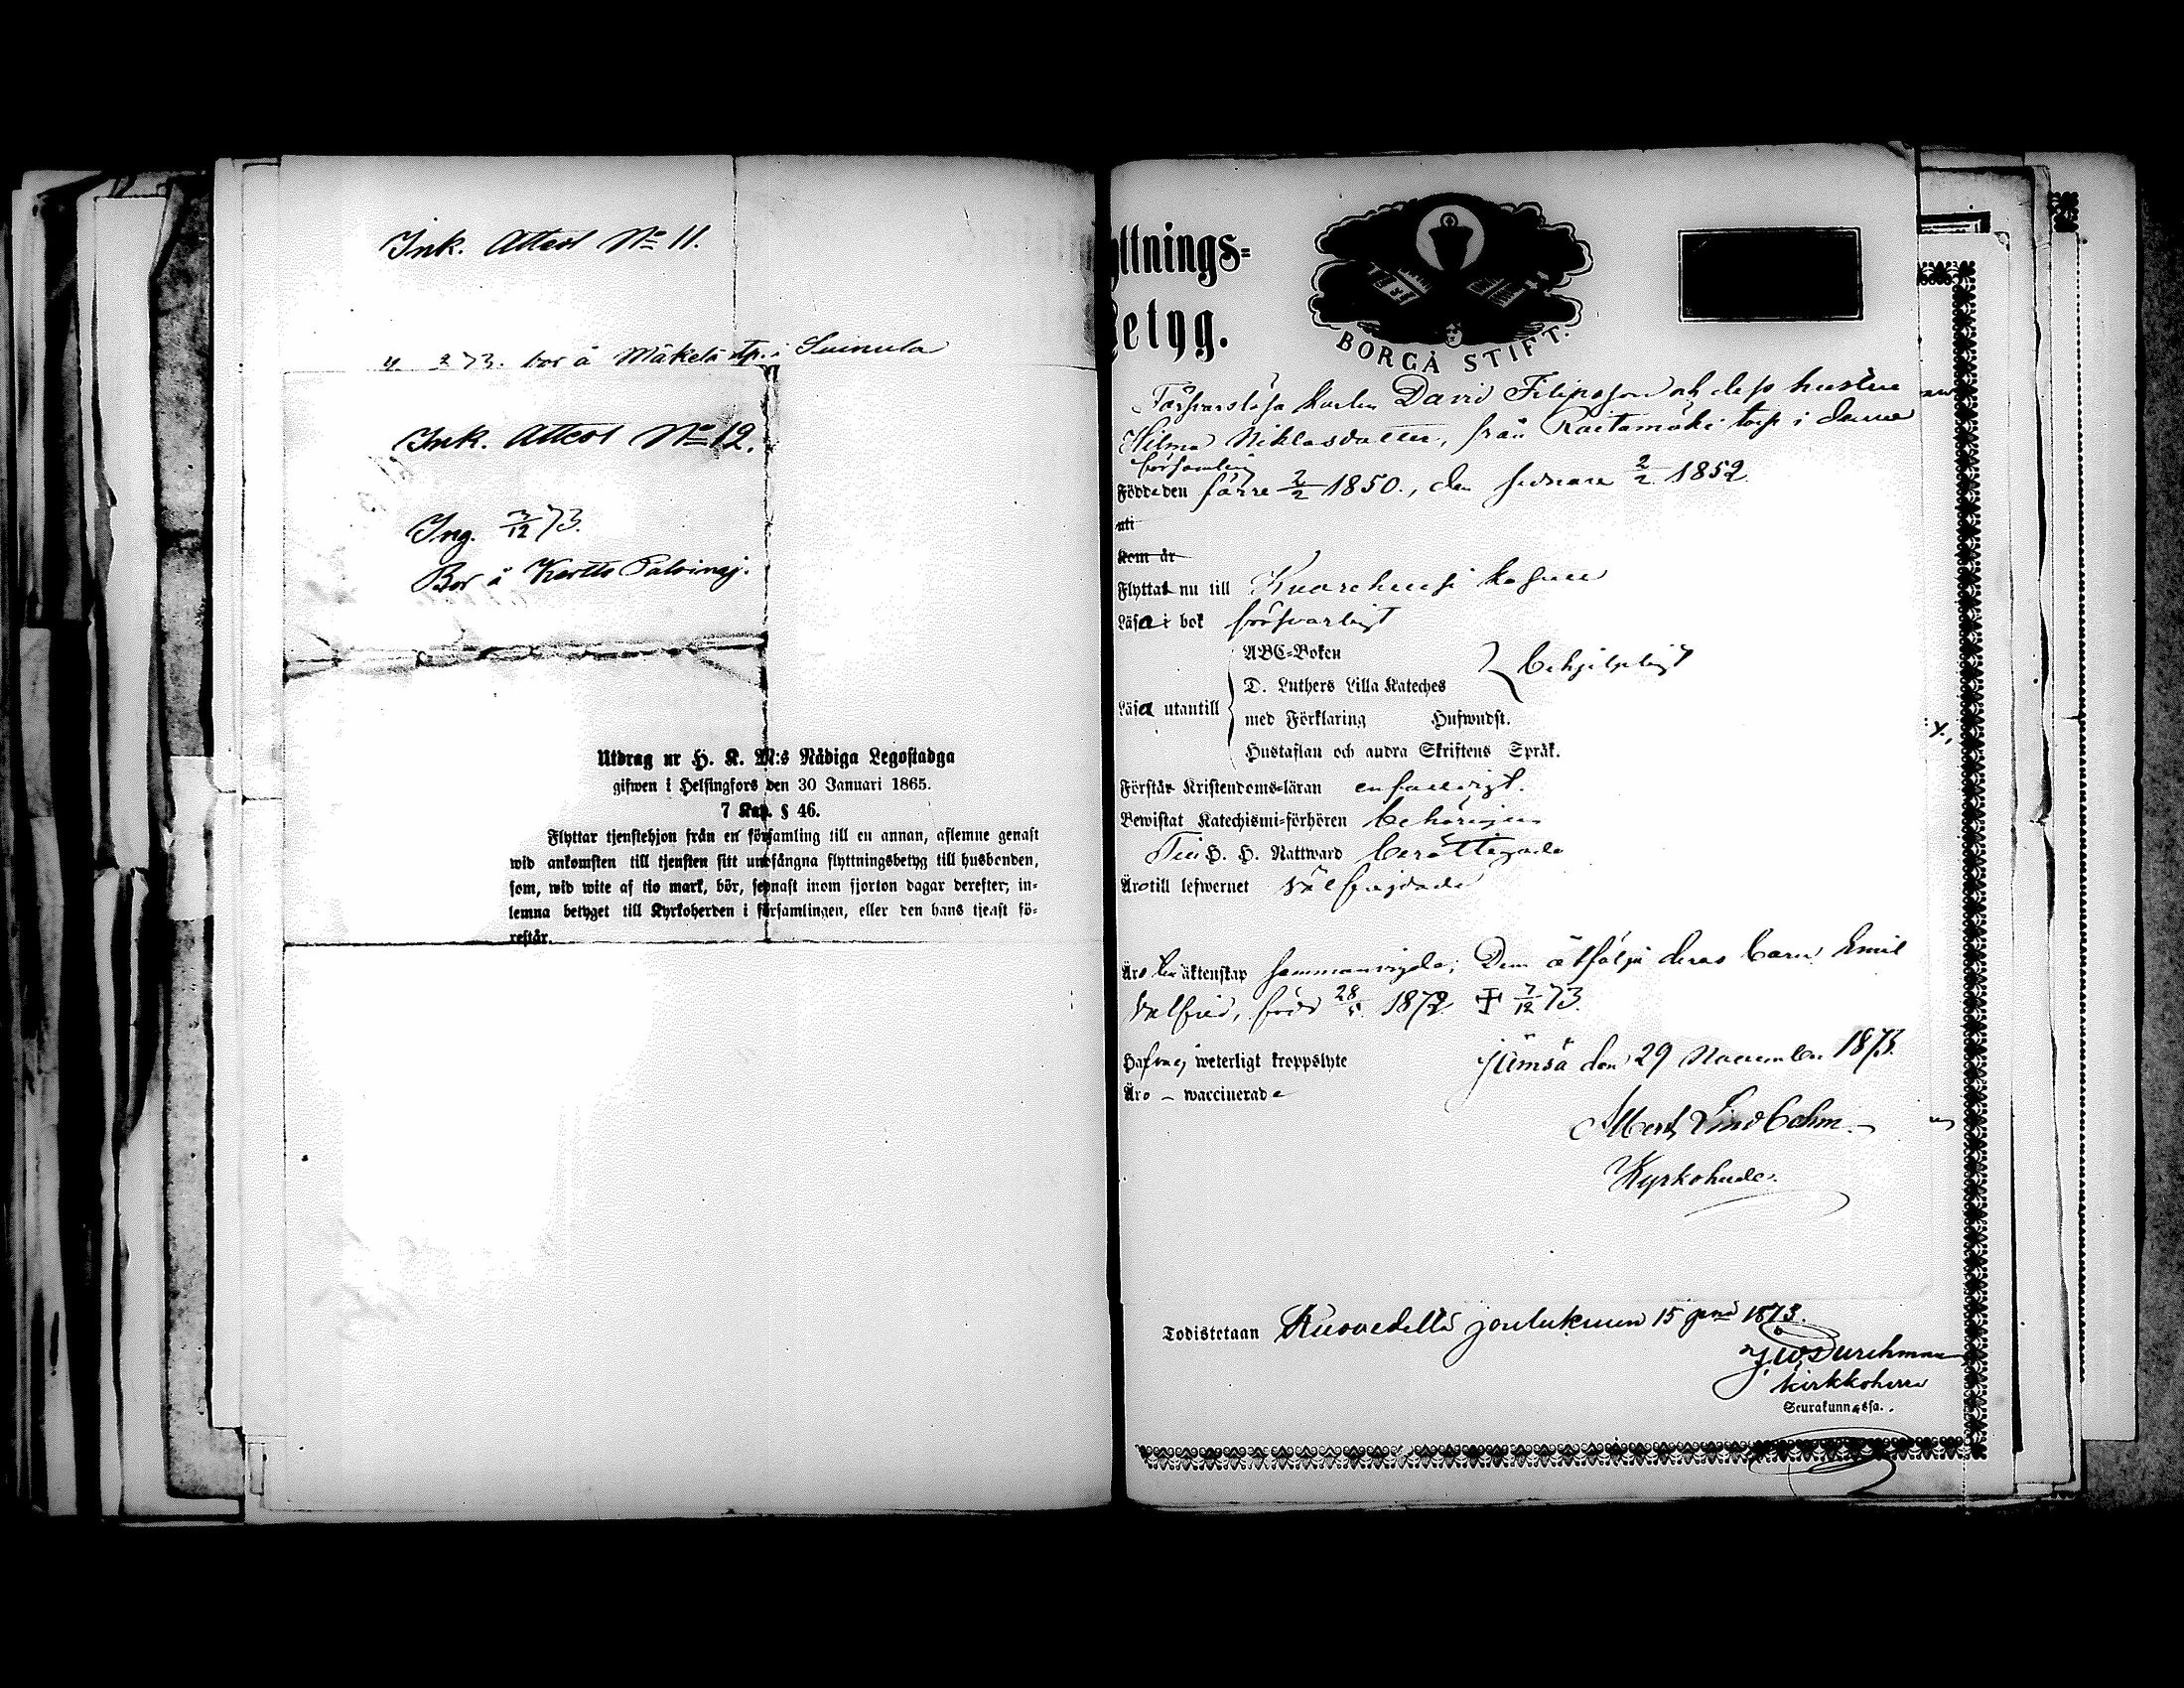 Ink. Attest No 11.
273. bor å Mäkelä tp. i Suinula
Ink. Attest No 12.
Ing. 3/12 73.
Bor å Kertte Palvimaj.
Utdrag ur H. K. M:s Nådiga Legostadga
gifwen i Helsingfors den 30 Januari 1865.
7 Kap. § 46.
Flyttar tjenstehjon från en församling till en annan, aflemne genast
wid ankomsten till tjensten sitt undfångna flyttningsbetyg till husbonden,
som, wid wite af tio mark, bör, senast inom fjorton dagar derefter, in-
lemna betyget till Kyrkoherden i församlingen, eller den hans tjenst fö-
restår.
yttnings-
etyg.
BORGÅ STIFT.
Försvarslösa karlen David Filipsson och dess hustru
Hilma Niklasdotter, från Raitamäki torp i denna
församling
Födde den förre 2/2 1850., den sednare 2/2 1852.
uti
kom år
Flyttat nu till Kuorehvesi kapell
Läsa i bok försvarligt
ABC-Boken
D. Luthers Lilla Kateches behjelpligt
Läsa utantill
med Förklaring Hufwudst.
Hustaflan och andra Skriftens Språk.
Förstår Kristendoms-läran enfaldigt.
Bewistat Katechismi-förhören behörigen
Till H. H. Nattward berättigade
Äro till lefwernet välfrejdade
Äro äktenskap sammanvigde; Dem åtfölja deras barn Emil
Valfrid, född 28/5 1872. 7/12 73.
Hafva ej weterligt kroppslyte
Jämsä den 29 November 1873.
Äro - waccinerade
Albert Lindbohm
Kyrkoherde.
Todistetaan Ruovedellä joulukuun 15 pnä 1873.
J. W. Durchman
kirkkoherra
Seurakunnassa.